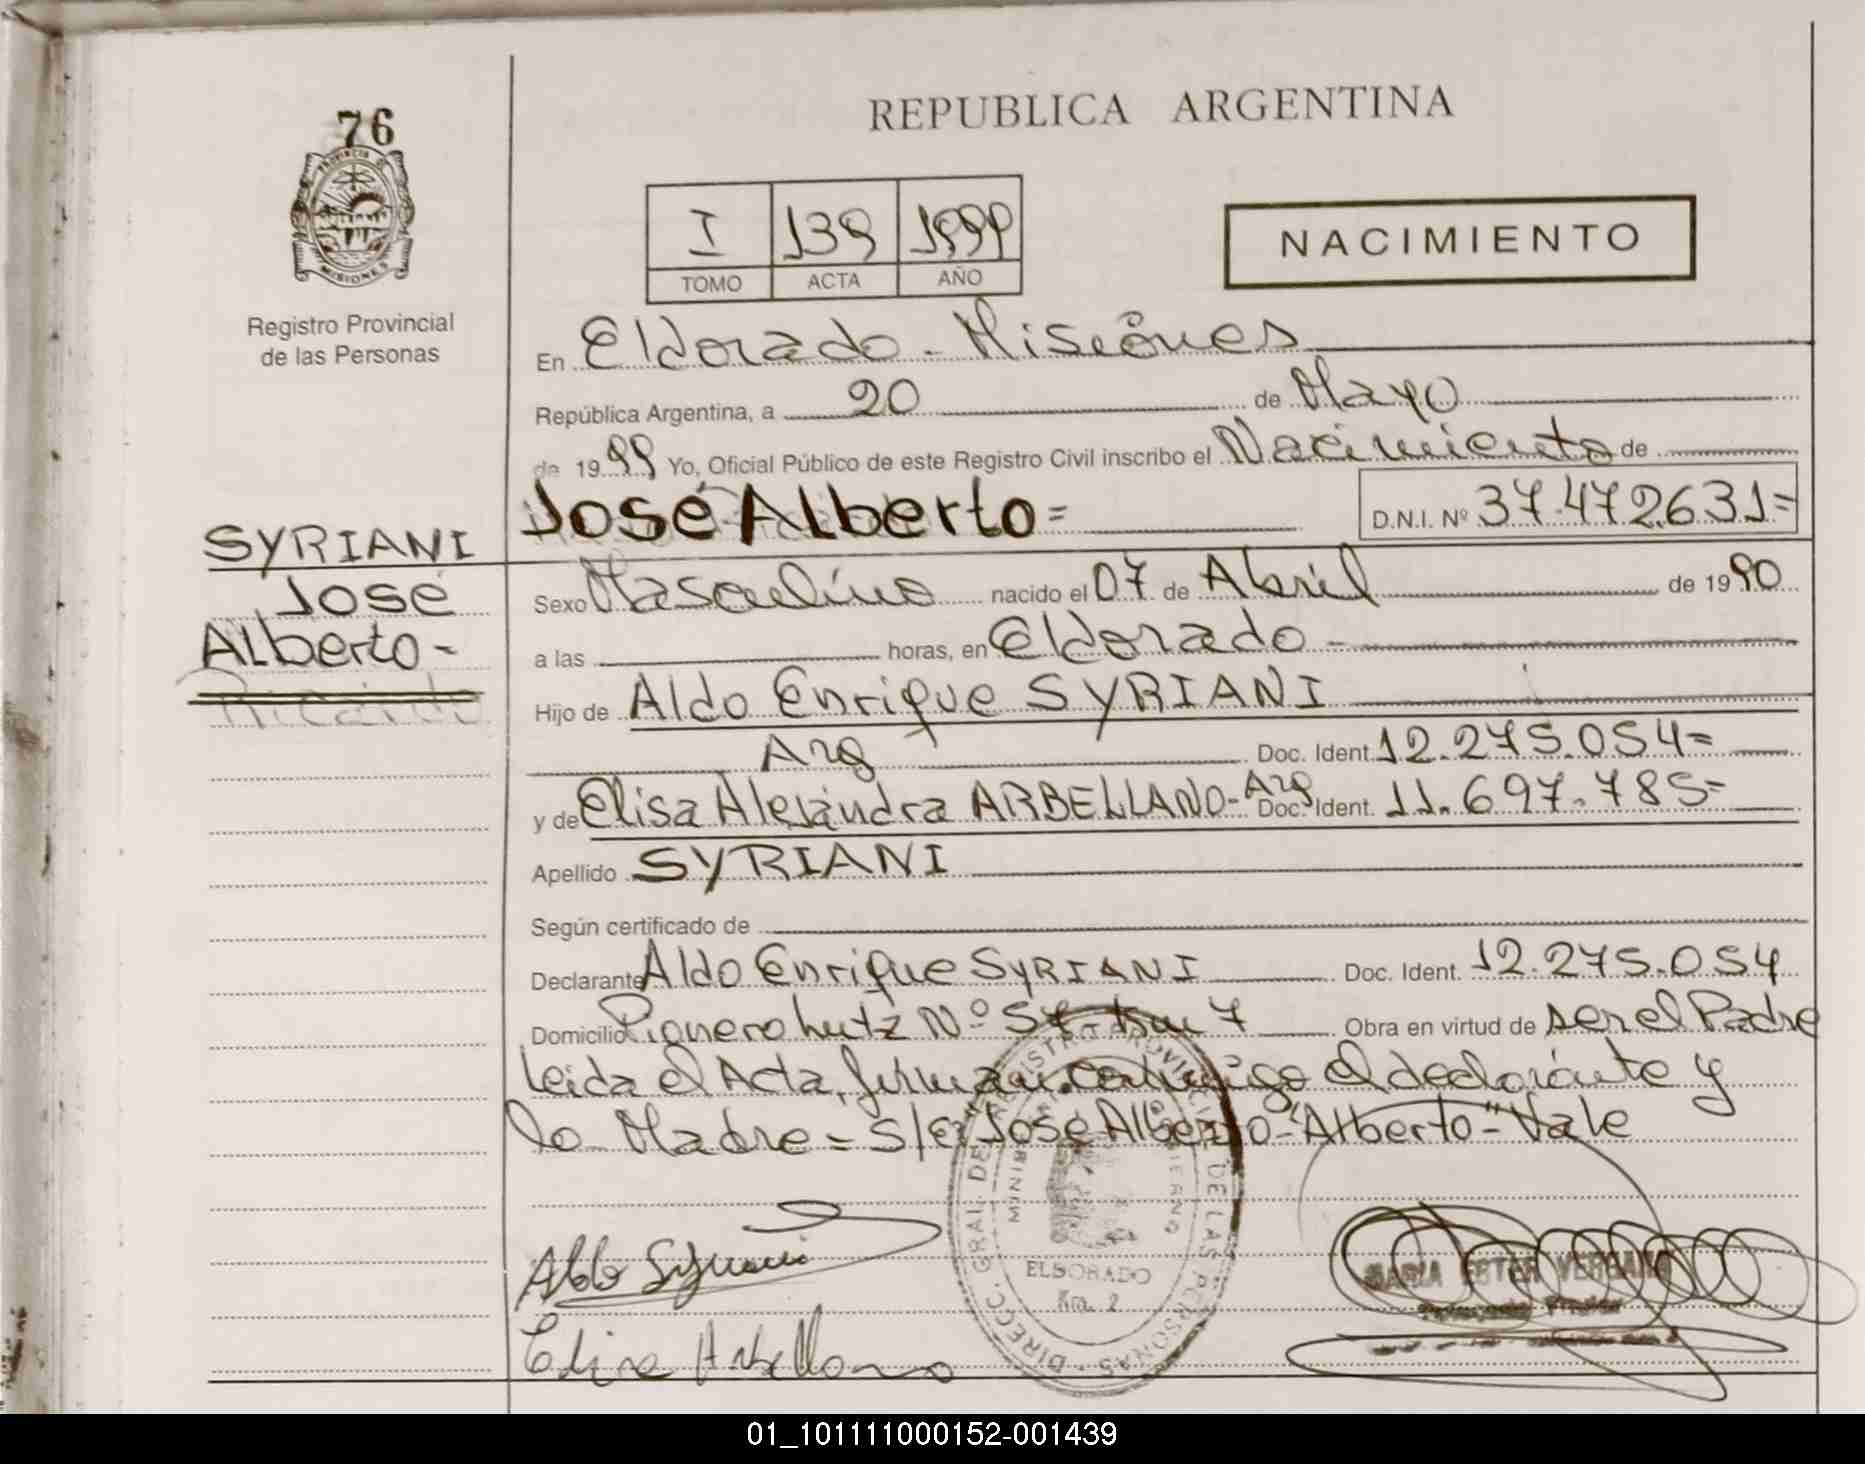 76
REPUBLICA ARGENTINA
PROVINCIA DE
MISIONES
Registro Provincial
de las Personas
I 139 1999
TOMO ACTA AÑO
NACIMIENTO
En Eldorado - Misiones
República Argentina, a 20 de Mayo
de 1999 Yo, Oficial Público de este Registro Civil inscribo el Nacimiento de
José Alberto =
D.N.I. Nº 37.472.631=
SYRIANI
José
Alberto -
Sexo Masculino nacido el 07 de Abril de 1990
a las horas, en Eldorado -
Hijo de Aldo Enrique SYRIANI
Arg Doc. Ident. 12.275.054=
y de Elisa Alejandra ARBELLANO - Arg Doc. Ident. 11.697.785=
Apellido SYRIANI
Según certificado de
Declarante Aldo Enrique SYRIANI Doc. Ident. 12.275.054
Domicilio Pionero Lutz Nº 57 7 Obra en virtud de ser el Padre
Leida el Acta, firman conmigo el declarante y
la Madre = S/R: José Alberto - "Alberto" - Vale
Aldo Syriani
Elisa Arbellano
DIREC. GRAL. DEL REGISTRO PROVINCIAL DE LAS PERSONAS
ELDORADO
MARIA ESTER
01_101111000152-001439